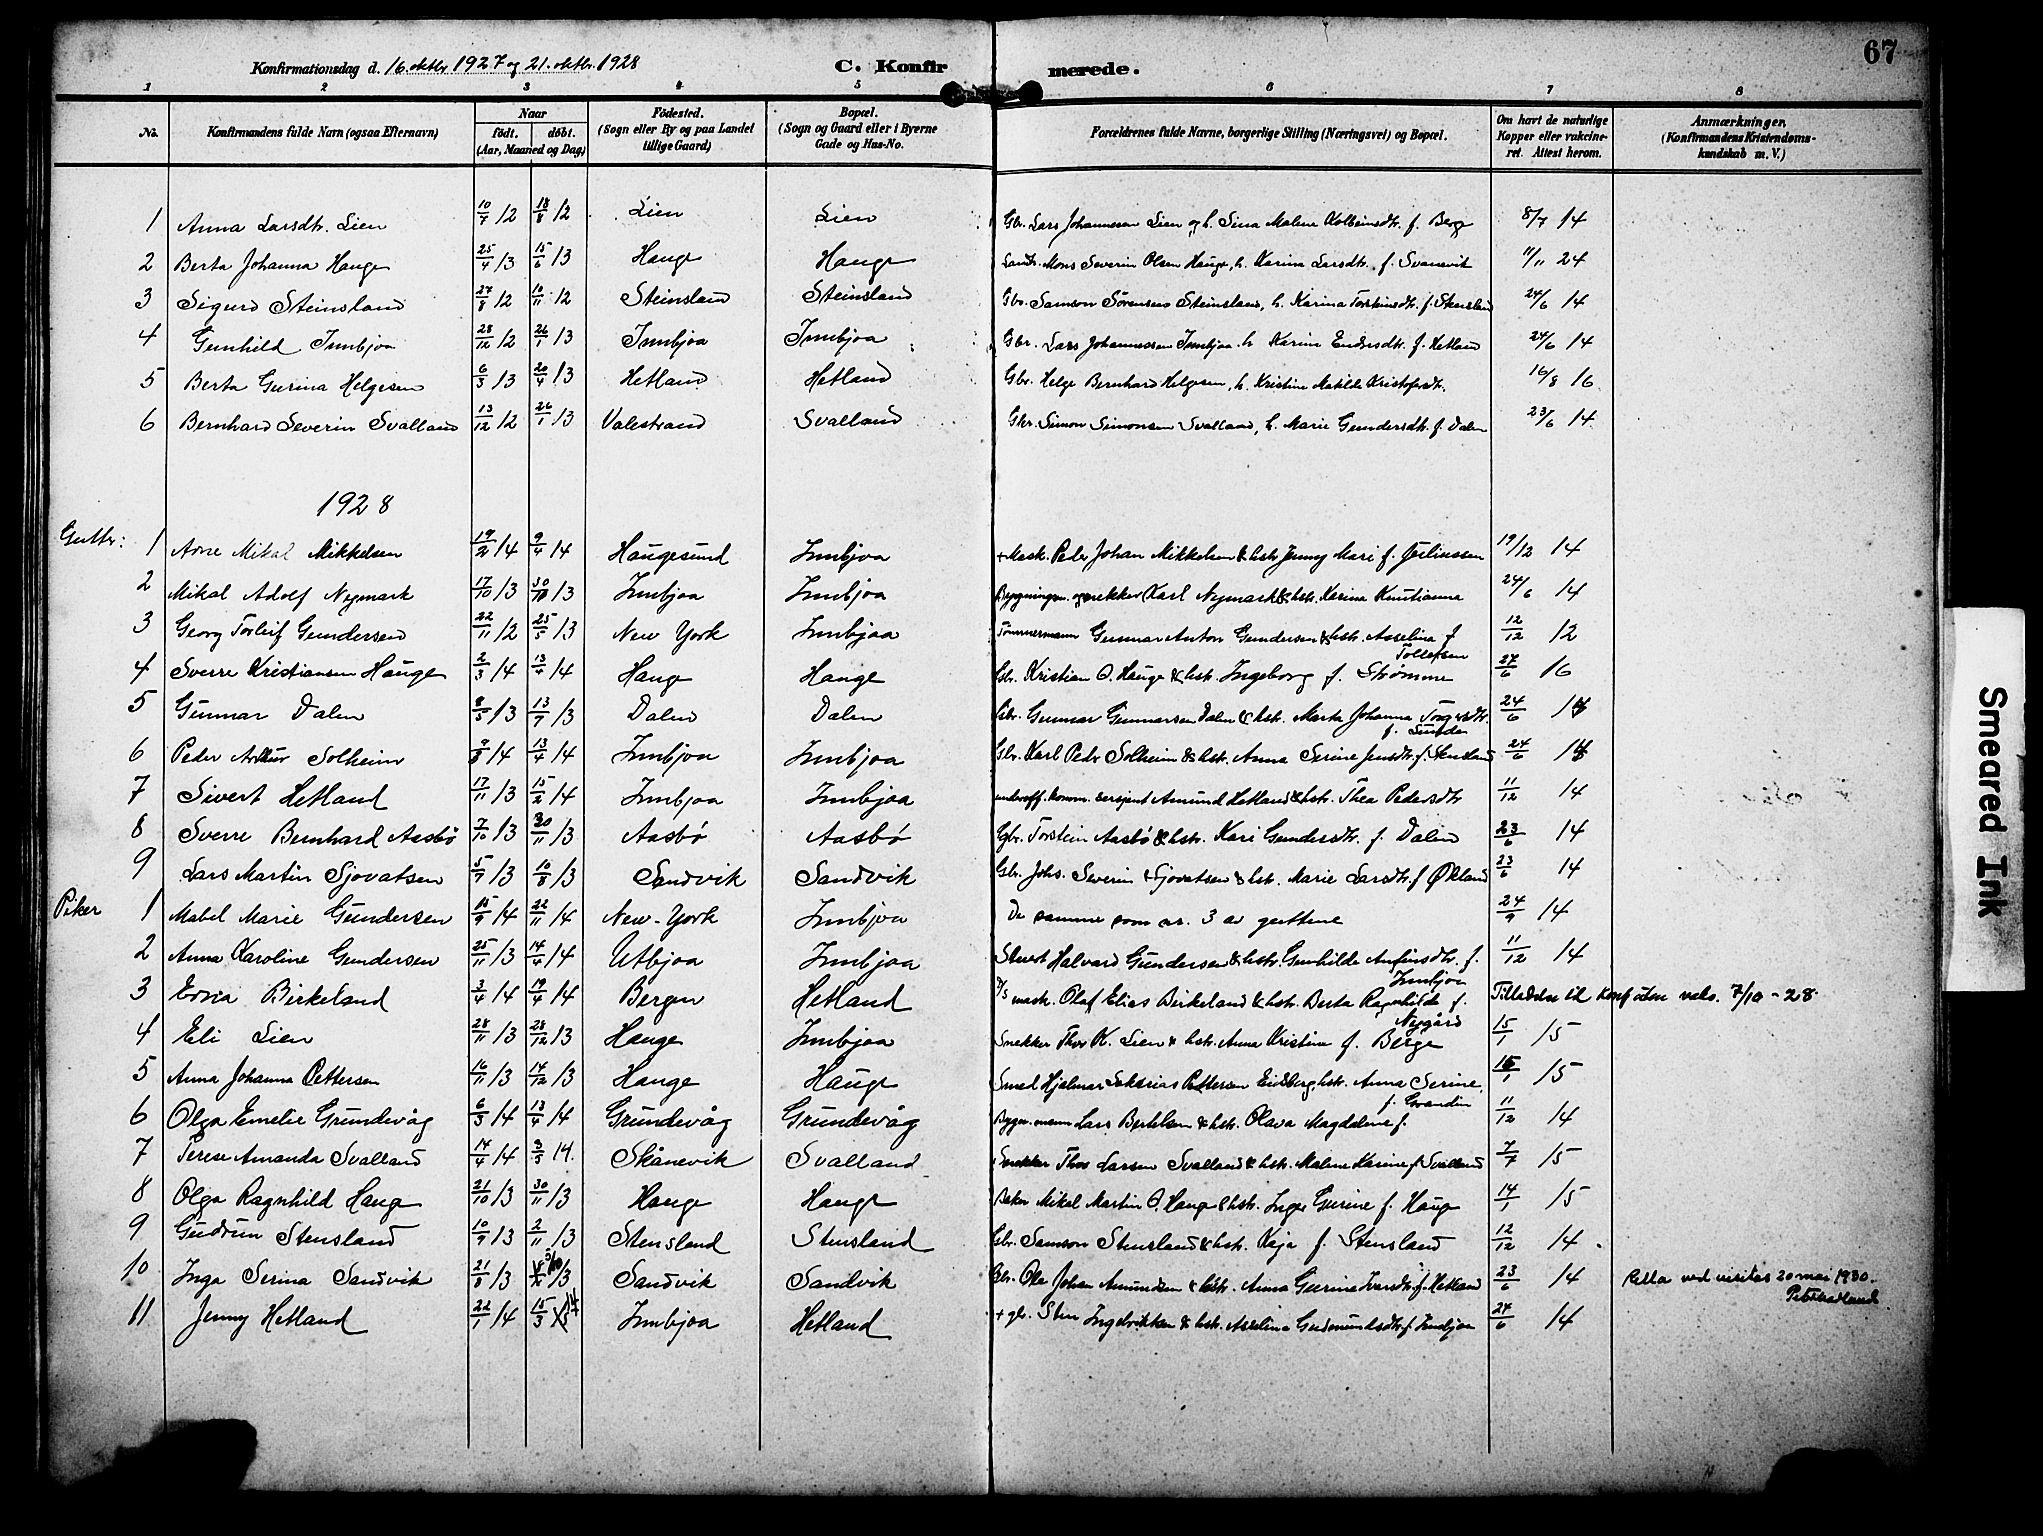 67
Konfirmationsdag d. 16. oktbr. 1927 og 21. oktbr. 1928 C. Konfirmerede.
1 2 3 4 5 6 7 8
No. Konfirmandens fulde Navn (ogsaa Efternavn) Naar födt. döbt. (Aar, Maaned og Dag) Födested. (Sogn eller By og paa Landet tillige Gaard) Bopæl. (Sogn og Gaard eller i Byerne Gade og Hus-No. Forældrenes fulde Navne, borgerlige Stilling (Næringsvei) og Bopæl. Om havt de naturlige Kopper eller vakcineret. Attest herom. Anmærkninger. (Konfirmandens Kristendomskundskab m. V.)
1 Anna Larsdtr. Lien 10/7 12 18/8 12 Lien Lien Gbr. Lars Johannesen Lien og h. Sina Malene Kolbeinsdtr. f. Berge 8/7 14
2 Berta Johanna Hauge 25/4 13 15/6 13 Hauge Hauge Mons Severin Olsen Hauge, h. Karina Larsdtr. f. Svanevik 11/11 24
3 Sigurd Steinsland 27/8 12 10/11 12 Steinsland Steinsland Gbr. Samson Sörensen Steinsland, h. Karina Torsteinsdtr. f. Stensland 24/6 14
4 Gunhild Innbjoa 28/12 12 26/1 13 Innbjoa Innbjoa Gbr. Lars Johannessen Innbjoa h. Karine Endresdtr. f. Hetland 24/6 14
5 Berta Gurina Helgesen 6/3 13 20/4 13 Hetland Hetland Gbr. Helge Bernhard Helgesen, h. Kristine Matilde Kristofersdtr. 16/8 16
6 Bernhard Severin Svalland 13/12 12 26/1 13 Valestrand Svalland Gbr. Simon Simonsen Svalland, h. Marie Gundersdtr. f. Dalen 23/6 14
1928
Gutter: 1 Arne Mikal Mikkelsen 19/2 14 9/4 14 Haugesund Innbjoa + Mask. Peder Johan Mikkelsen & hstr. Jenny Mari f. 19/12 14
2 Mikal Adolf Nymark 17/10 13 30/11 13 Innbjoa Innbjoa Bygningsm. og snekker Karl Nymark & hstr. Karina Knutianna 24/6 14
3 Georg Torleif Gundersen 22/11 12 25/5 13 New York Innbjoa Tømmermann Gunnar Anton Gundersen & hstr. Asselina f. Tollefsen 12/12 12
4 Sverre Kristiansen Hauge 2/3 14 13/4 14 Hauge Hauge Gbr. Kristian O. Hauge & hstr. Ingeborg f. Strømme 27/6 16
5 Gunnar Dalen 8/5 13 13/7 13 Dalen Dalen Gbr. Gunnar Gunnarsen Dalen & hstr. Marta Johanna 24/6 14
6 Peder Arthur Solheim 9/3 14 13/4 14 Innbjoa Innbjoa Gbr. Karl Peder Solheim & hstr. Anna Serine Jensdtr. f. Stensland 24/6 14
7 Sivert Hetland 17/11 13 15/2 14 Innbjoa Innbjoa underoff. komm. sersjent Amund Hetland & hstr. Thea Pedersdtr 11/12 14
8 Sverre Bernhard Aasbö 7/10 13 30/11 13 Aasbö Aasbö Gbr. Torstein Aasbö & hstr. Kari Gundersdtr. f. Dalen 23/6 14
9 Lars Martin Sjovatsen 5/7 13 10/8 13 Sandvik Sandvik Gbr. Johs. Severin Sjovatsen & hstr. Marie Larsdtr. f. Økland 23/6 14
Piker 1 Mabel Marie Gundersen 15/9 14 22/11 14 New-York Innbjoa De samme som nr. 3 av guttene 24/9 14
2 Anna Karoline Gundersen 25/11 13 14/4 14 Utbjoa Innbjoa Stuert Halvard Gundersen & hstr. Gunhilde Anfinsdtr. f. Innbjoa 11/12 14
3 Erna Birkeland 3/4 14 19/4 14 Bergen Hetland D/S mask. Olaf Elias Birkeland & hstr. Berta Ragnhilda f. Nygård Tilladelse til konf. uten vaks. 7/10 - 28
4 Eli Lien 28/11 13 28/12 13 Hauge Innbjoa Snekker Thor K. Lien & hstr. Anna Kristine f. Berge 15/1 15
5 Anna Johanna Pettersen 16/11 13 14/12 13 Hauge Hauge Smed Hjelmar Sakarias Pettersen Eidsberg, hstr. Anna Serine 15/1 15
6 Olga Emelie Grundevåg 6/3 14 13/4 14 Grundevåg Grundevåg Bygn.mann Lars Bertelsen & hstr. Olava Magdalene f. 11/12 14
7 Terese Amanda Svalland 14/4 14 3/5 14. Skånevik Svalland Snekker Thor Larsen Svalland & hstr. Malene Karine f. Svalland 7/7 15
8 Olga Ragnhild Hauge 21/10 13 30/11 13 Hauge Hauge Baker Mikal Martin O. Hauge & hstr. Inger Gurine f. Hauge 14/1 15
9 Gudrun Stensland 10/9 13 2/11 13 Stensland Stensland Gbr. Samson Stensland & hstr. Kaja f. Stensland 12/12 14
10 Inga Serina Sandvik 21/8 13 5/10 13 Sandvik Sandvik Gbr. Ole Johan Amundsen & hstr. Anna Gurine Iversdtr. f. Hetland 23/6 14 Retta ved visitas 20 mai 1930.
11 Jenny Hetland 22/1 14 15/3 14 Innbjoa Hetland + gbr. Sten Ingebriktsen & hstr. Asselina Gudmundsdtr. f. Innbjoa 24/6 14
Smeared Ink